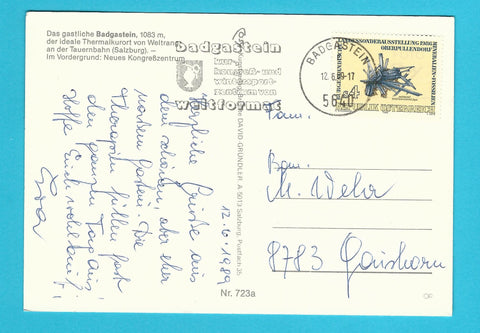 Das gastliche Badgastein, 1083 m,
der ideale Thermalkurort von Weltrang
an der Tauernbahn (Salzburg). —
Im Vordergrund: Neues Kongreßzentrum
badgastein
kur-
kongreß- und
wintersport-
zentrum von
weltformat
BADGASTEIN
12.6.89-17
5640
LANDESSONDERAUSSTELLUNG
MINERALIEN+FOSSILIEN
OBERPULLENDORF
S4
REPUBLIK ÖSTERREICH
DAVID GRÜNDLER A 5013 Salzburg, Postfach 35
12.6.1989
Herzliche Grüße aus
dem schönen, aber eher
nassen Gastein. Die
Therapien füllen fast
den ganzen Tag aus.
Hoffe Euch wohlauf!
Fam.
M. Wehr
8783 Gaishorn
Nr. 723a